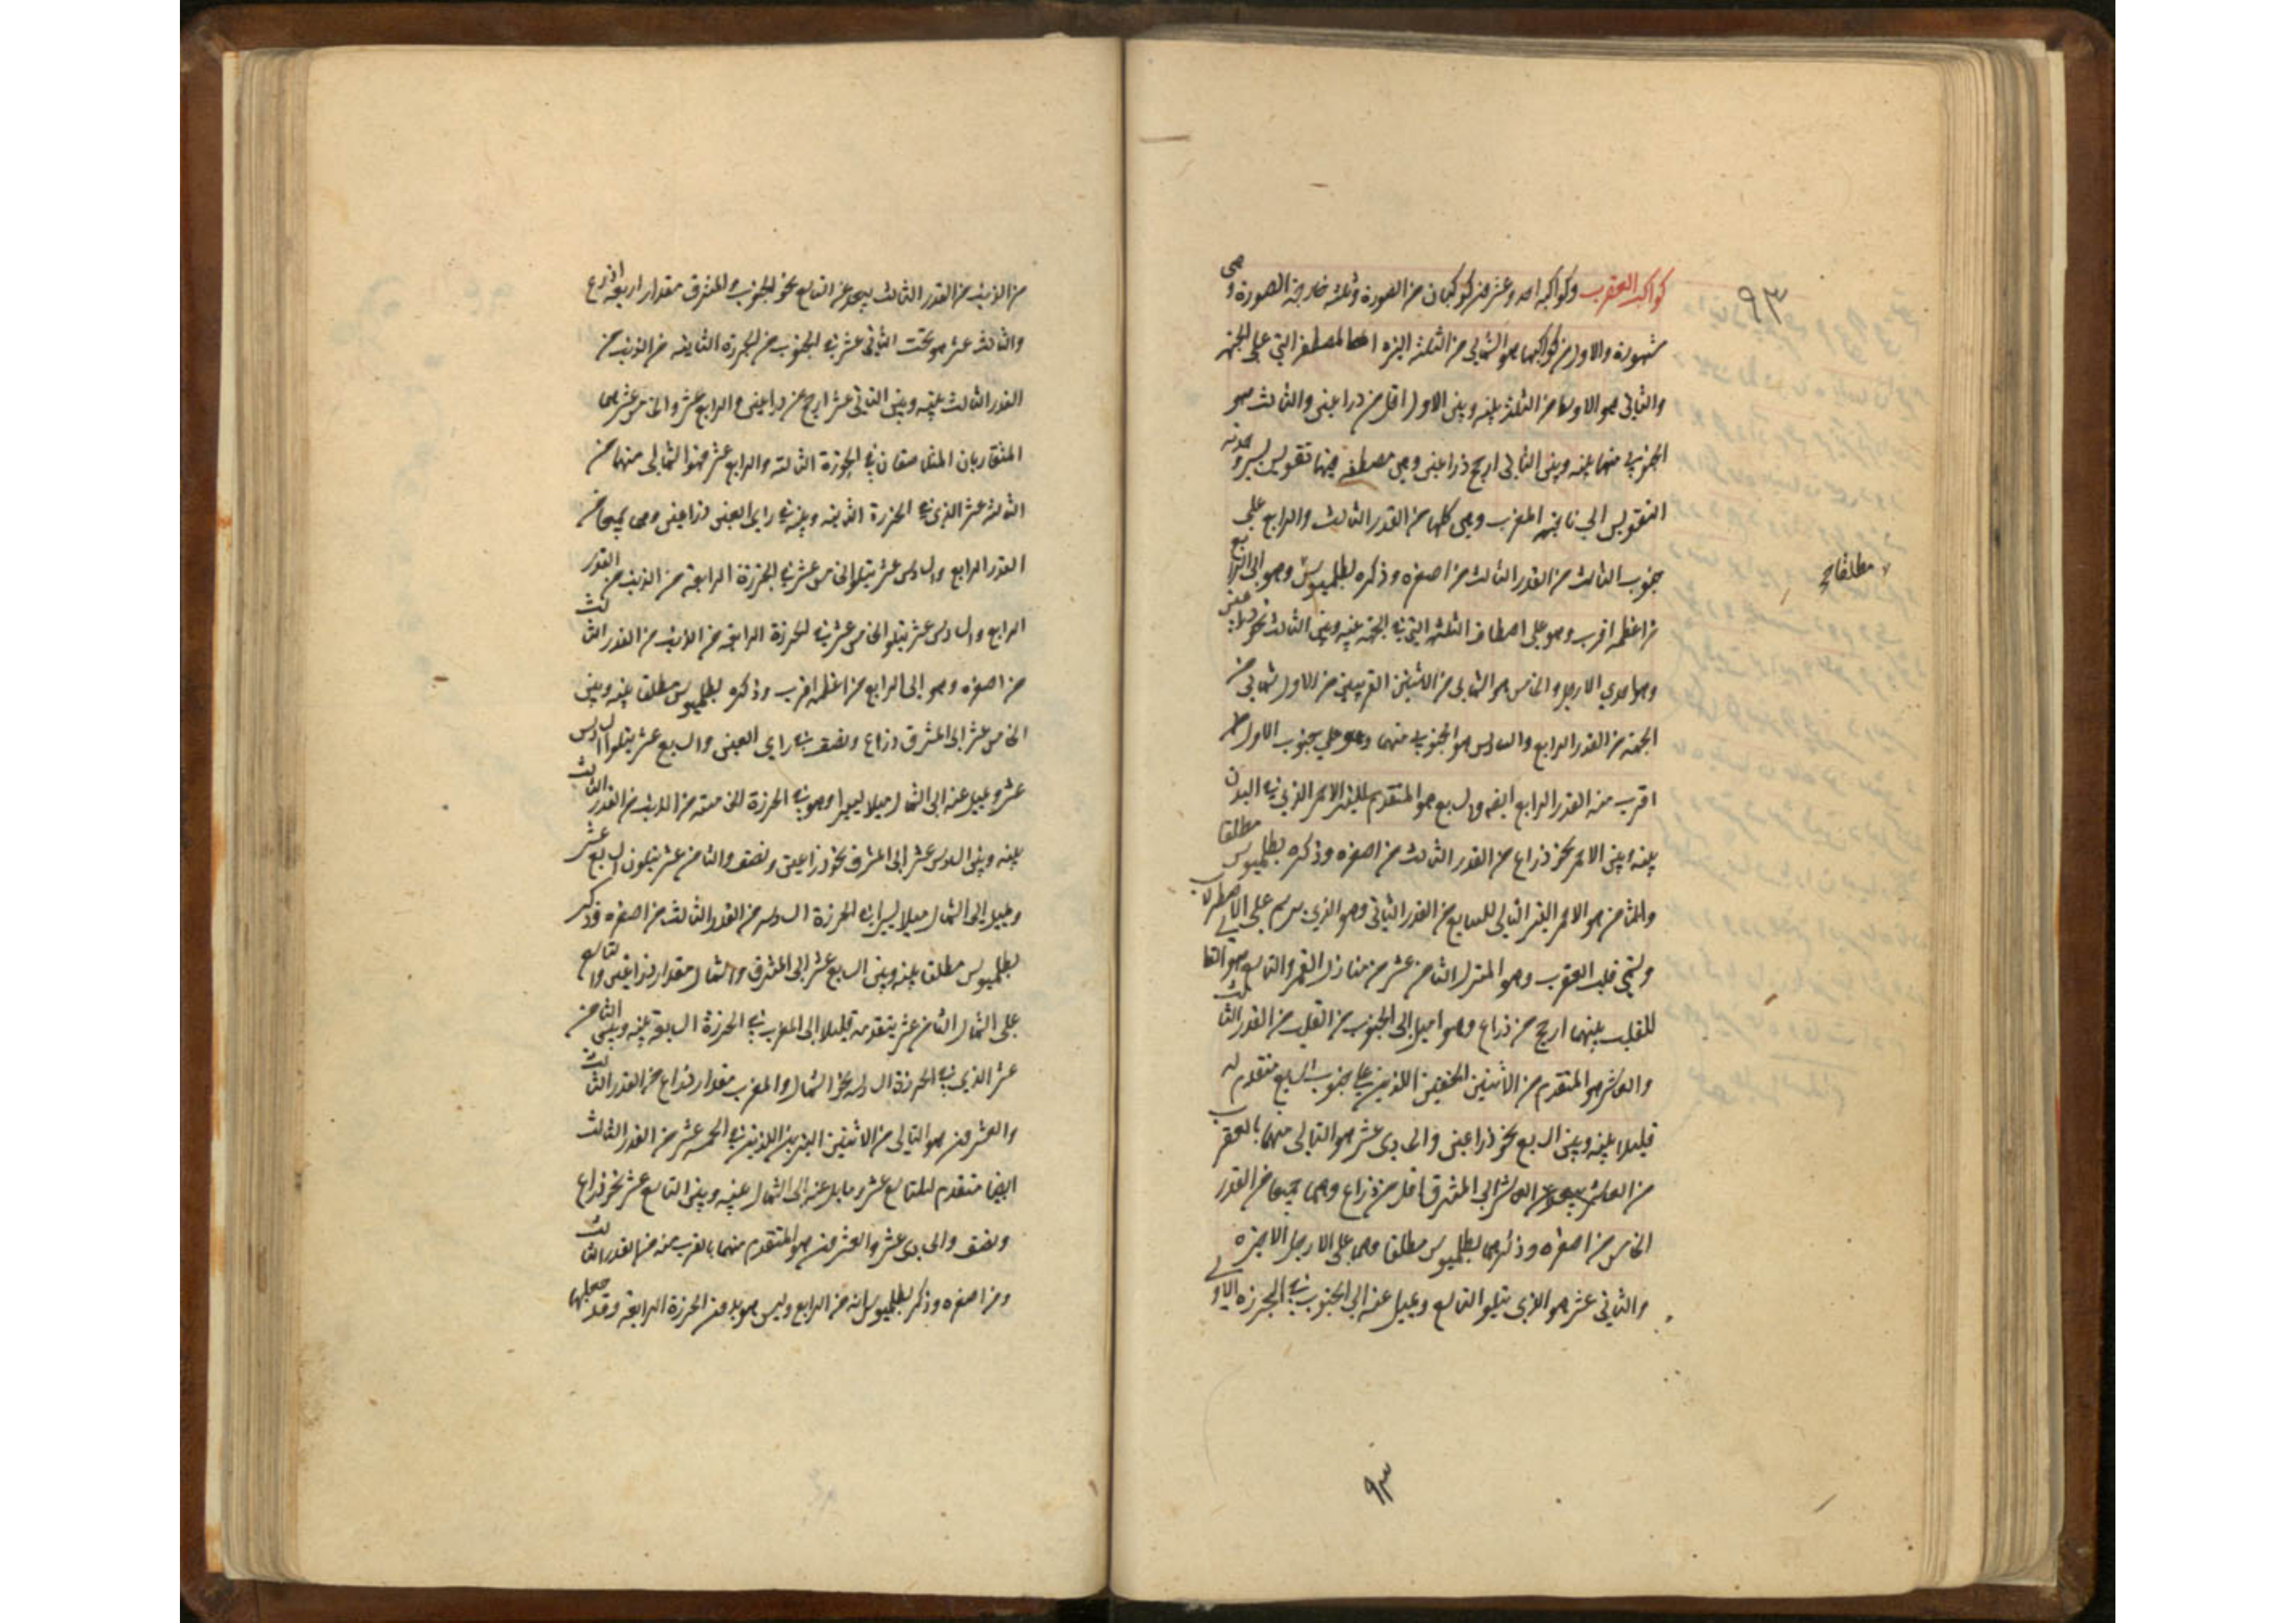 كواكب العقرب وكواكبه احد وعشرون كوكبا من الصورة وثلثة خارجة الصورة وهى
مشهورة والاول من كواكبها هو الشمالى من الثلثة النيرة المصطفة التى على الجبهة
والثانى هو الاوسط من الثلثة بينه وبين الاول اقل من ذراعين والثالث هو
الجنوبى منها بينه وبين الثانى ارجح ذراعين وهى مصطفة فيها تقويس يسير وحدبة
التقويس الى ناحية المغرب وهى كلها من القدر الثالث والرابع على
جنوب الثالث من القدر الثالث من اصغره وذكره بطلميوس وهو الى الرابع
مطلقا صح
من اعظمه اقرب وهو على اصطفاف الثلثة التى فى الجبهة بينه وبين الثالث نحو ذراعين
وهما احدى الارجل والخامس هو الشمالى من الاثنين القريبين من الاول شمالى من
الجبهة من القدر الرابع والسادس هو الجنوبى منهما وهو على جنوب الاول
اقرب منه القدر الرابع ايضه والسابع هو المتقدم للنير الاحمر الذى فى البدن
بينه وبين الاحمر نحو ذراع من القدر الثالث من اصغره وذكره بطلميوس مطلقا
والثامن هو الاحمر النير التالى للسابع من القدر الثانى وهو الذى يرسم على الاصطرلاب
ويسمى قلب العقرب وهو المنزل الثامن عشر من منازل القمر والتاسع هو التالى
للقلب بينهما ارجح من ذراع وهو اميل الى الجنوب من القلب من القدر الثالث
والعاشر هو المتقدم من الاثنين الخفيين اللذين على جنوب السابع متقدم له
قليلا بينه وبين السابع نحو ذراعين والحادى عشر هو التالى منهما بالقرب
من العاشر العاشر الى المشرق اقل من ذراع وهما جميعا من القدر
الخامس من اصغره وذكرهما بطلميوس مطلقا وهما على الارجل الاخيرة
والثانى عشر هو الذى يتلو التاسع ويميل عنه الى الجنوب فى الخرزة الاولى
٩٣
من الذنب من القدر الثالث يبعد عن التاسع نحو الجنوب والمشرق مقدار اربعة اذرع
والثالث عشر هو تحت الثانى عشر فى الجنوب من الخرزة الثانية من الذنب من
القدر الثالث بينه وبين الثانى عشر ارجح من ذراعين والرابع عشر والخامس عشر هما
المتقاربان المتلاصقان فى الخرزة الثالثة والرابع عشر منهما الشمالى منهما من
الثالث عشر الذى فى الخرزة الثانية وبينه فى راى العين ذراعين وهى جميعا من
القدر الرابع والسادس عشر يتلو الخامس عشر فى الخرزة الرابعة من الذنب من القدر
الرابع والسادس عشر يتلو الخامس عشر فى الخرزة الرابعة من الذنب من القدر الثالث
من اصغره وهو الى الرابع من اعظمه اقرب وذكره بطلميوس مطلقا بينه وبين
الخامس عشر الى المشرق ذراع ونصف فى راى العين والسابع عشر يتلو السادس
عشر ويميل عنه الى الشمال ميلا يسيرا وهو فى الخرزة الخامسة من الذنب من القدر الثالث
بينه وبين السادس عشر الى المشرق نحو ذراعين ونصف والثامن عشر يتلو السابع عشر
ويميل الى الشمال ميلا يسيرا فى الخرزة السادسة من القدر الثالث من اصغره وذكر
بطلميوس مطلقا بينه وبين السابع عشر الى المشرق والشمال مقدار ذراعين والتاسع
على الشمال الثامن عشر يتقدمه قليلا الى المغرب فى الخرزة السابعة بينه وبين الثامن
عشر الذى فى الخرزة السادسة نحو الشمال والمغرب مقدار ذراع من القدر الثالث
والعشرون هو التالى من الاثنين النيرين اللذين فى الحمة عشر من القدر الثالث
ايضا متقدم للتاسع عشر ومايل عنه الى الشمال بينه وبين التاسع عشر نحو ذراع
ونصف والحادى عشر والعشرون هو المتقدم منهما بالقرب منه من القدر الثالث
ومن اصغره وذكر بطلميوس انه من الرابع وليس هو بدون الخرزة الرابعة وقد جعلها